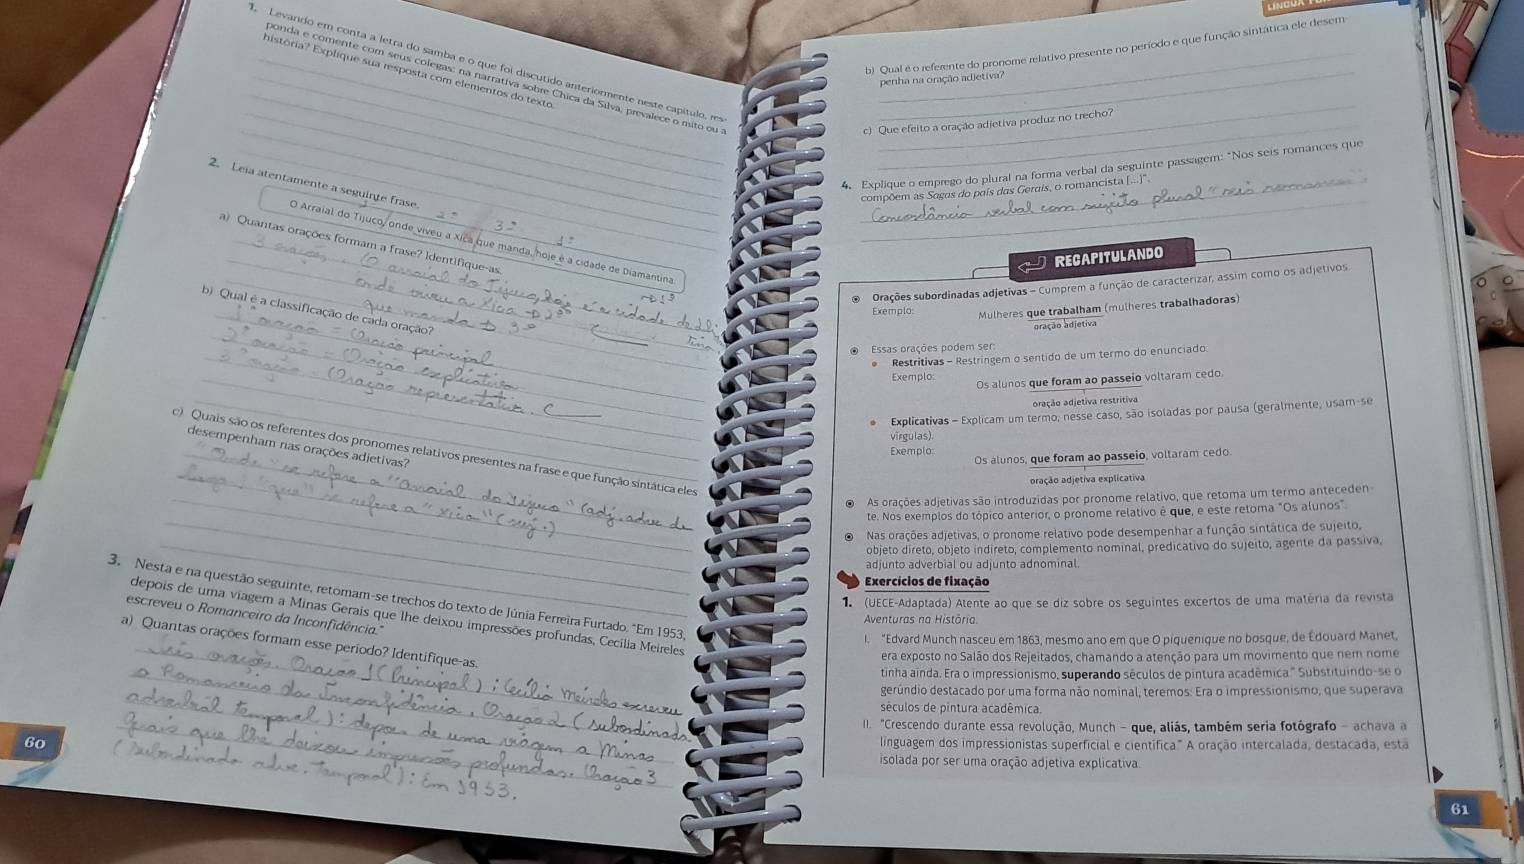 1. Levando em conta a letra do samba e o que foi discutido anteriormente neste capítulo, res-
ponda e comente com seus colegas: na narrativa sobre Chica da Silva, prevalece o mito ou a
história? Explique sua resposta com elementos do texto.
2. Leia atentamente a seguinte frase.
2ª 3ª 1ª
O Arraial do Tijuco, onde viveu a Xica que manda, hoje é a cidade de Diamantina.
a) Quantas orações formam a frase? Identifique-as.
3 orações. (O arraial do Tijuco, hoje é a cidade de
onde viveu a Xica → 2ª
que manda → 3ª
b) Qual é a classificação de cada oração?
1ª oração = Oração principal
2ª oração = Oração explicativa
3ª oração = Oração
c) Quais são os referentes dos pronomes relativos presentes na frase e que função sintática eles
desempenham nas orações adjetivas?
"Onde" se refere a "Arraial do Tijuco" (adj. adv. de
lugar) "que" se refere a "Xica" (suj.)
3. Nesta e na questão seguinte, retomam-se trechos do texto de Júnia Ferreira Furtado. "Em 1953,
depois de uma viagem a Minas Gerais que lhe deixou impressões profundas, Cecília Meireles
escreveu o Romanceiro da Inconfidência."
a) Quantas orações formam esse período? Identifique-as.
três orações. Oração 1 (Principal): Cecília Meireles escreveu
o Romanceiro da Inconfidência. Oração 2 (subordinada
adverbial temporal): depois de uma viagem a Minas
Gerais que lhe deixou impressões profundas. Oração 3
(subordinada adve. temporal): Em 1953.
60
LÍNGUA
b) Qual é o referente do pronome relativo presente no período e que função sintática ele desem-
penha na oração adjetiva?
c) Que efeito a oração adjetiva produz no trecho?
4. Explique o emprego do plural na forma verbal da seguinte passagem: "Nos seis romances que
compõem as Sagas do país das Gerais, o romancista [...]".
Concordância verbal com sujeito plural "seis romances".
RECAPITULANDO
Orações subordinadas adjetivas – Cumprem a função de caracterizar, assim como os adjetivos.
Exemplo:
Mulheres que trabalham (mulheres trabalhadoras)
oração adjetiva
Essas orações podem ser:
Restritivas – Restringem o sentido de um termo do enunciado.
Exemplo:
Os alunos que foram ao passeio voltaram cedo.
oração adjetiva restritiva
Explicativas – Explicam um termo; nesse caso, são isoladas por pausa (geralmente, usam-se
vírgulas).
Exemplo:
Os alunos, que foram ao passeio, voltaram cedo.
oração adjetiva explicativa
As orações adjetivas são introduzidas por pronome relativo, que retoma um termo anteceden-
te. Nos exemplos do tópico anterior, o pronome relativo é que, e este retoma "Os alunos".
Nas orações adjetivas, o pronome relativo pode desempenhar a função sintática de sujeito,
objeto direto, objeto indireto, complemento nominal, predicativo do sujeito, agente da passiva,
adjunto adverbial ou adjunto adnominal.
Exercícios de fixação
1. (UECE-Adaptada) Atente ao que se diz sobre os seguintes excertos de uma matéria da revista
Aventuras na História.
I. "Edvard Munch nasceu em 1863, mesmo ano em que O piquenique no bosque, de Édouard Manet,
era exposto no Salão dos Rejeitados, chamando a atenção para um movimento que nem nome
tinha ainda. Era o impressionismo, superando séculos de pintura acadêmica." Substituindo-se o
gerúndio destacado por uma forma não nominal, teremos: Era o impressionismo, que superava
séculos de pintura acadêmica.
II. "Crescendo durante essa revolução, Munch – que, aliás, também seria fotógrafo – achava a
linguagem dos impressionistas superficial e científica." A oração intercalada, destacada, está
isolada por ser uma oração adjetiva explicativa.
61